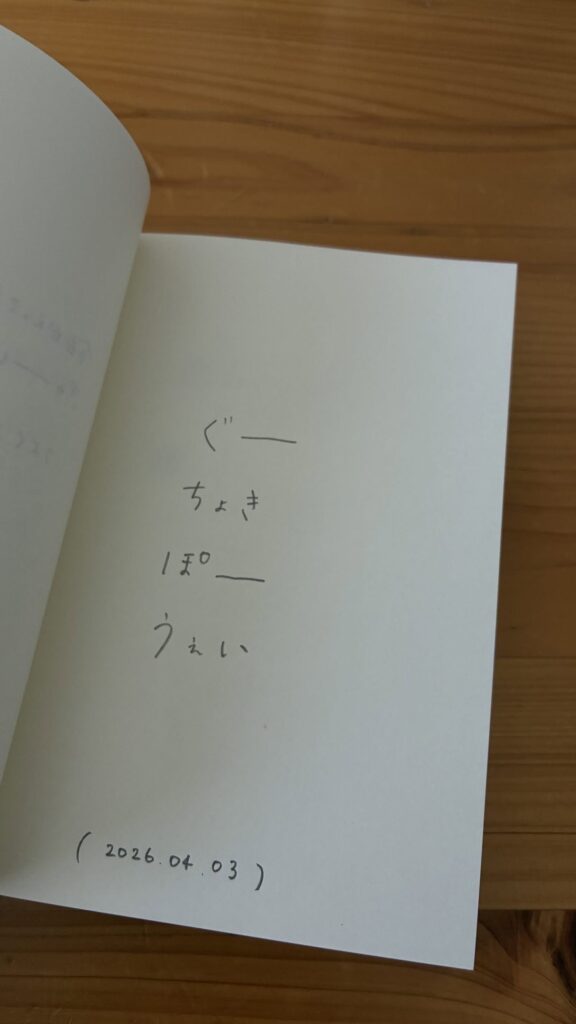 ぐー
ちょき
ぱー
うぇい
(2026.04.03)